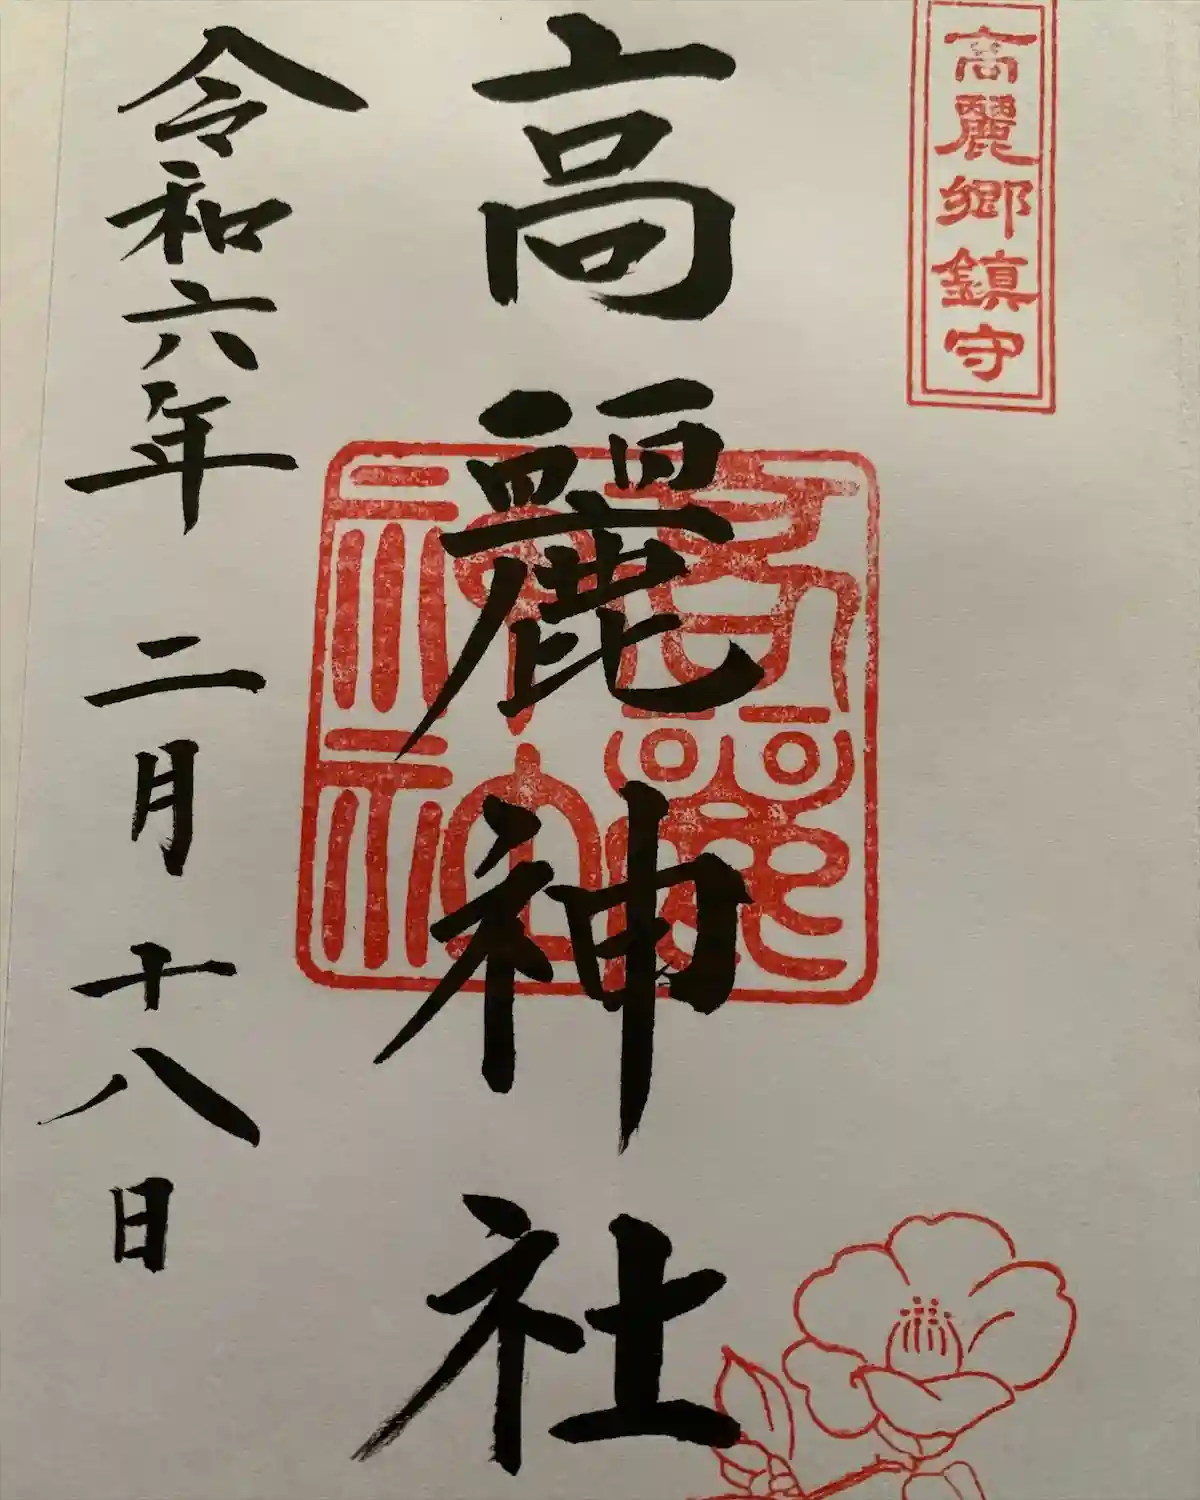 高麗郷鎮守
高麗神社
高麗神社
令和六年 二月十八日